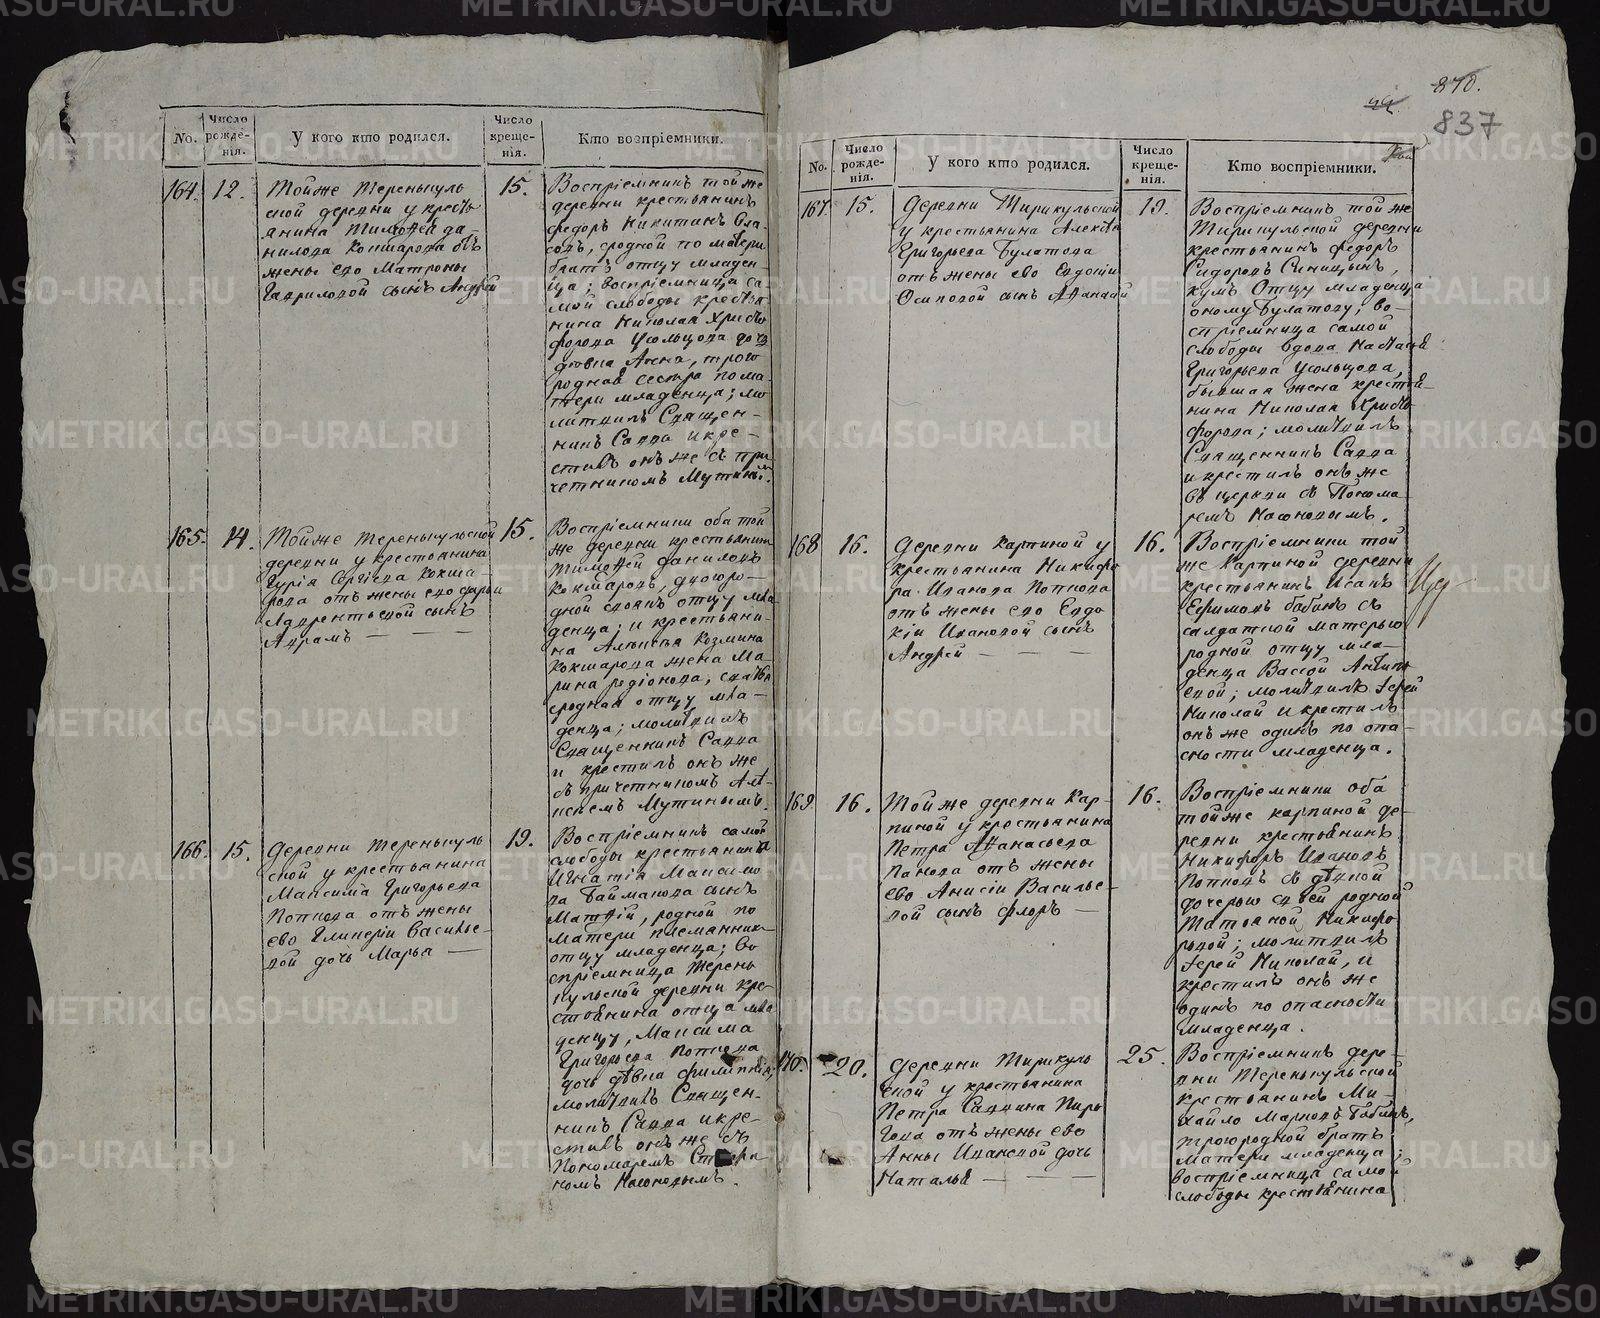 No.
Число рожде-нія.
У кого кто родился.
Число креще-нія.
Кто воспріемники.
164.
12.
Той же Теренькуль
ской деревни у кресть
янина Тимофея Да
нилова Кокшарова отъ
жены его Матроны
Гавриловой сынъ Андрей
15.
Воспріемникъ той же
деревни крестьянинъ
Федоръ Никитинъ
родной по матери
братъ отцу младен-
ца; воспріемница са-
мой слободы кресть
янина Николая Христо
форова Усольцова дочь
девка Анна, трою
родная сестра по ма-
тери младенца; мо
литвилъ Священ-
никъ Савва и кре-
стилъ онъ же съ при
четникомъ Мутинымъ.
165.
14.
Той же Теренькульской
деревни у крестьянина
Гурія Сергіева Кокша-
рова отъ жены его Дарьи
Лаврентьевой сынъ
Аврамъ
15.
Воспріемники оба той
же деревни крестьянинъ
Тимофей Даниловъ
Кокшаровъ, двоюро-
дной отцу мла
денца; и крестьяни-
на Алексея Козмина
Кокшарова жена Ма-
рина Родіонова,
сродная отцу мла-
денца; молитвилъ
Священникъ Савва
и крестилъ онъ же
съ причетникомъ Але-
ксеемъ Мутинымъ.
166.
15.
Деревни Теренькуль
ской у крестьянина
Максима Григорьева
Попкова отъ жены
ево Гликеріи Василье-
вой дочь Марья
19.
Воспріемникъ самой
слободы крестьянина
Игнатія Максимо
ва Баймакова сынъ
Матвей, родной по
матери племянник
отцу младенца; во
спріемница Терень
кульской деревни кре-
стьянина отца мла
денцу, Максима
Григорьева Попкова
дочь девка
молитвилъ Священ-
никъ Савва и кре-
стилъ онъ же съ
Пономаремъ
Насоновымъ.
870.
837
No.
Число рожде-нія.
У кого кто родился.
Число креще-нія.
Кто воспріемники.
167.
15.
Деревни Тирикульской
у крестьянина Алексея
Григорьева Булатова
отъ жены ево Евдокіи
Осиповой сынъ Афанасій
19.
Воспріемникъ той же
Тирикульской деревни
крестьянинъ Федоръ
Сидоровъ Синицынъ,
кумъ Отцу младенца
оному Булатову; во-
спріемница самой
слободы вдова Настасья
Григорьева Усольцова,
бывшая жена крестья-
нина Николая Христо
форова; молитвилъ
Священникъ Савва
и крестилъ онъ же
въ церкви съ Понома
ремъ Насоновымъ.
168
16.
Деревни Карпиной у
крестьянина Никифо
ра Иванова Попкова
отъ жены его Евдо
кіи Ивановой сынъ
Андрей
16.
Воспріемники той
же Карпиной деревни
крестьянинъ Исакъ
Ефимовъ Бабинъ съ
салдаткой матерью
родной отцу мла-
денца Вассой Антипи
евой; молитвилъ Іерей
Николай и крестилъ
онъ же одинъ по опа-
сности младенца.
169
16.
Той же деревни Кар-
пиной у крестьянина
Петра Афанасьева
Панова отъ жены
ево Анисіи Василье-
вой сынъ Флоръ
16.
Воспріемники оба
той же Карпиной де-
ревни крестьянинъ
Никифоръ Ивановъ
Попковъ съ девкой
дочерью своей родной
Татьяной Никифо
ровой; молитвилъ
Іерей Николай, и
крестилъ онъ же
одинъ по опасности
младенца.
170.
20.
Деревни Тирикуль
ской у крестьянина
Петра Саввина Пиро
гова отъ жены ево
Анны Ивановой дочь
Наталья
25.
Воспріемникъ дере-
вни Теренькульской
крестьянинъ Ми-
хайло Марковъ Бабинъ,
троюродной братъ
матери младенца;
воспріемница самой
слободы крестьянина
METRIKI.GASO-URAL.RU